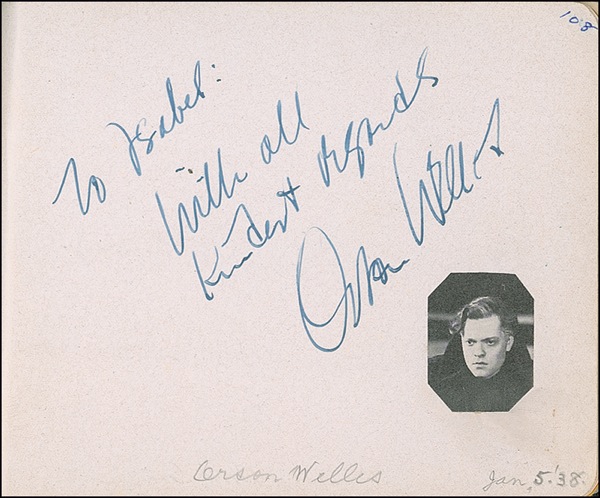 108
To Isabel:
With all
Kindest regards
Orson Welles
Orson Welles
Jan. 5. '38.